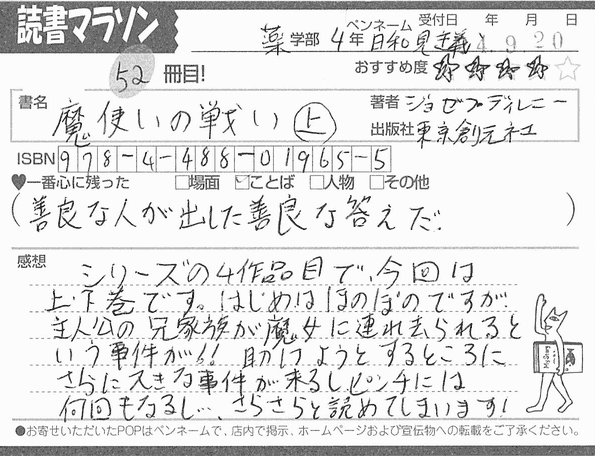 読書マラソン
52 冊目!
薬 学部 4年 ペンネーム 日和見主義 受付日 年 月 日
4.9.20
おすすめ度 ★★★★☆
書名 魔使いの戦い 上
著者 ジョゼフディレニー
出版社 東京創元社
ISBN 978-4-488-01965-5
♥一番心に残った □場面 ☑ことば □人物 □その他
(善良な人が出した善良な答えだ.)
感想
シリーズの4作品目で、今回は
上・下巻です。はじめはほのぼのですが、
主人公の兄家族が魔女に連れ去られると
いう事件が!! 助けようとするところに
さらに大きな事件が来るしピンチには
何回もなるし…、さらさらと読めてしまいます!
●お寄せいただいたPOPはペンネームで、店内で掲示、ホームページおよび宣伝物への転載をご了承ください。